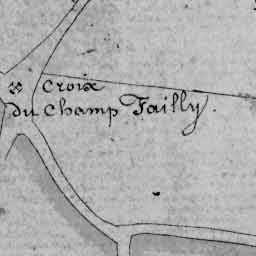 Croix
du Champ Failly.